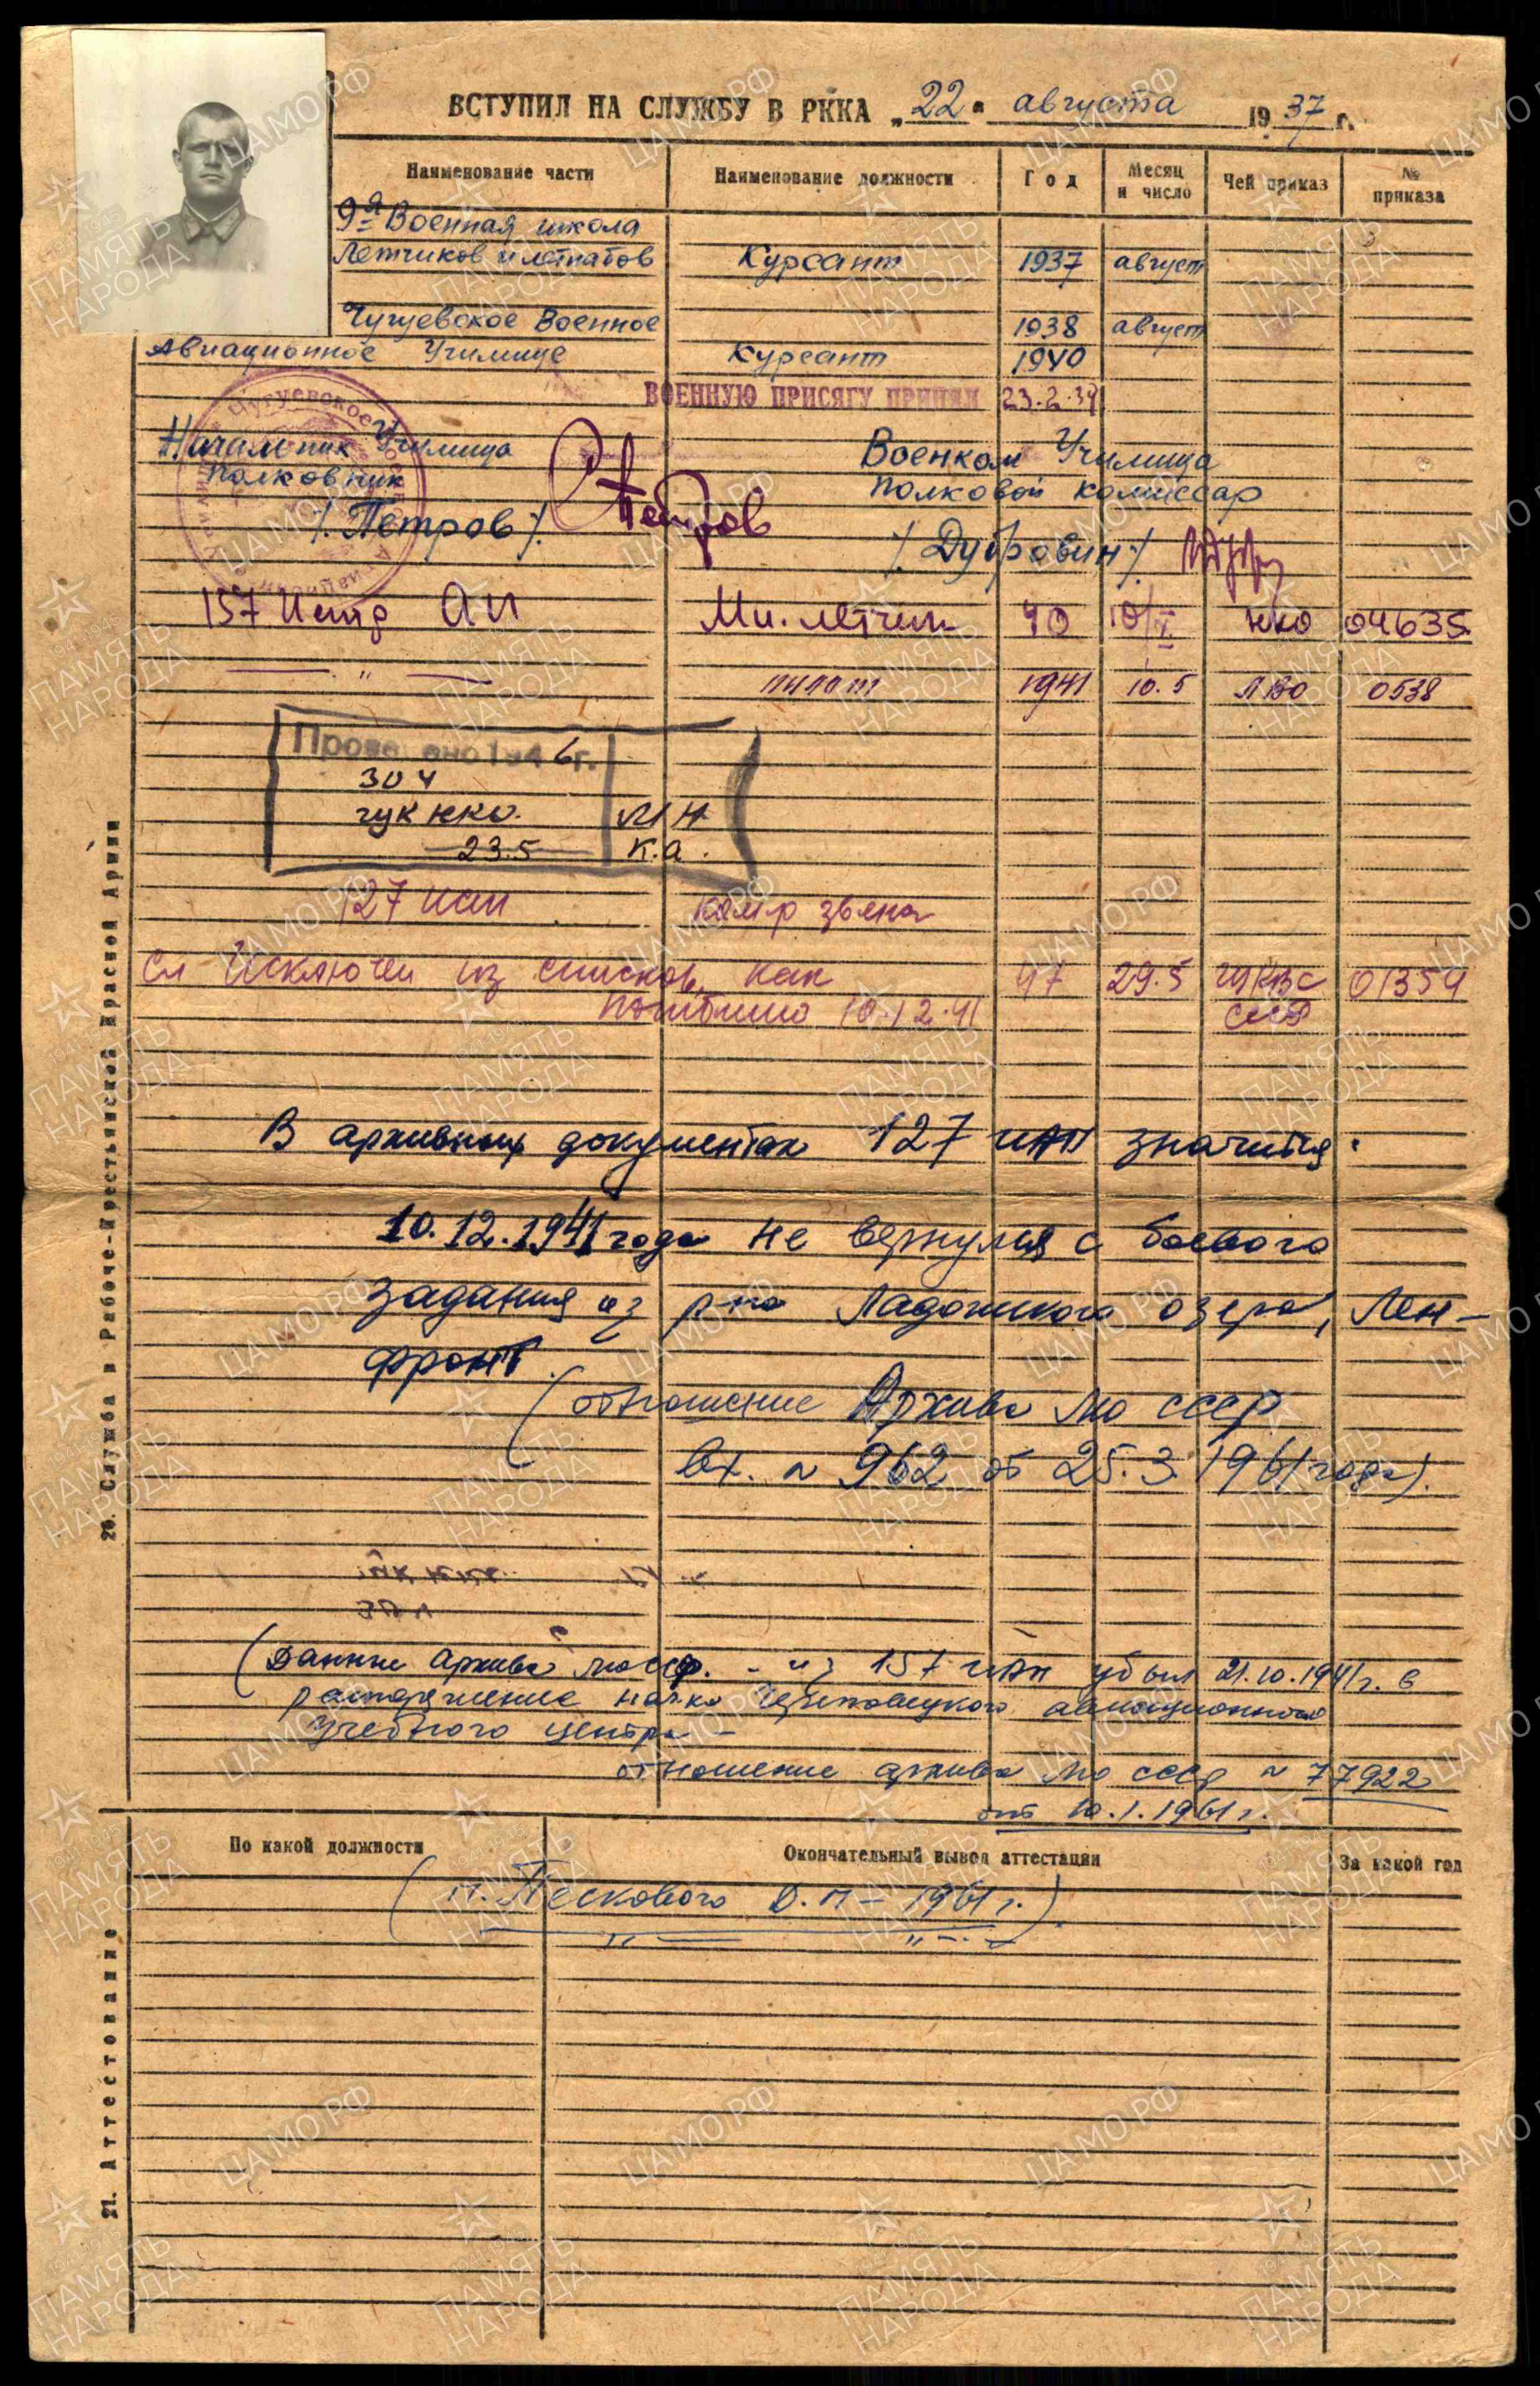 ВСТУПИЛ НА СЛУЖБУ В РККА „22" августа 1937 г.
Наименование части Наименование должности Год Месяц и число Чей приказ № приказа
9я Военная школа
Летчиков и летнабов Курсант 1937 август
Чугуевское Военное 1938 август
Авиационное Училище Курсант 1940
ВОЕННУЮ ПРИСЯГУ ПРИНЯЛ 23.2.39
Начальник Училища Военком Училища
Полковник Полковой комиссар
/Петров/. Петров /Дубровин/.
157 Истр АП Мл. летчик 40 10/X НКО 04635
— " — пилот 1941 10.5 ЛВО 0538
Проверено 1946г.
ГУК НКО.
23.5 К.А.
127 иап Ком-р звена
Исключен из списков, как 47 29.5 ГУК ВС 01359
погибший 10.12.41 СССР
В архивных документах 127 ИАП значится:
10.12.1941 года не вернулся с боевого
задания из р-на Ладожского озера, Лен-
фронт.
(отношение Архива МО СССР
Вх. № 962 от 25.3.1961 года).
(Данные Архива МО СССР. - из 157 ИАП убыл 21.10.1941г. в
распоряжение нач-ка Череповецкого авиационного
Учебного центра —
отношение архива МО СССР № 77922
от 10.1.1961г.
По какой должности Окончательный вывод аттестации За какой год
(п. Пескового Д.П - 1961г.)
20. Служба в Рабоче-Крестьянской Красной Армии
21. Аттестование
ЦАМО.РФ
ПАМЯТЬ НАРОДА
1941-1945